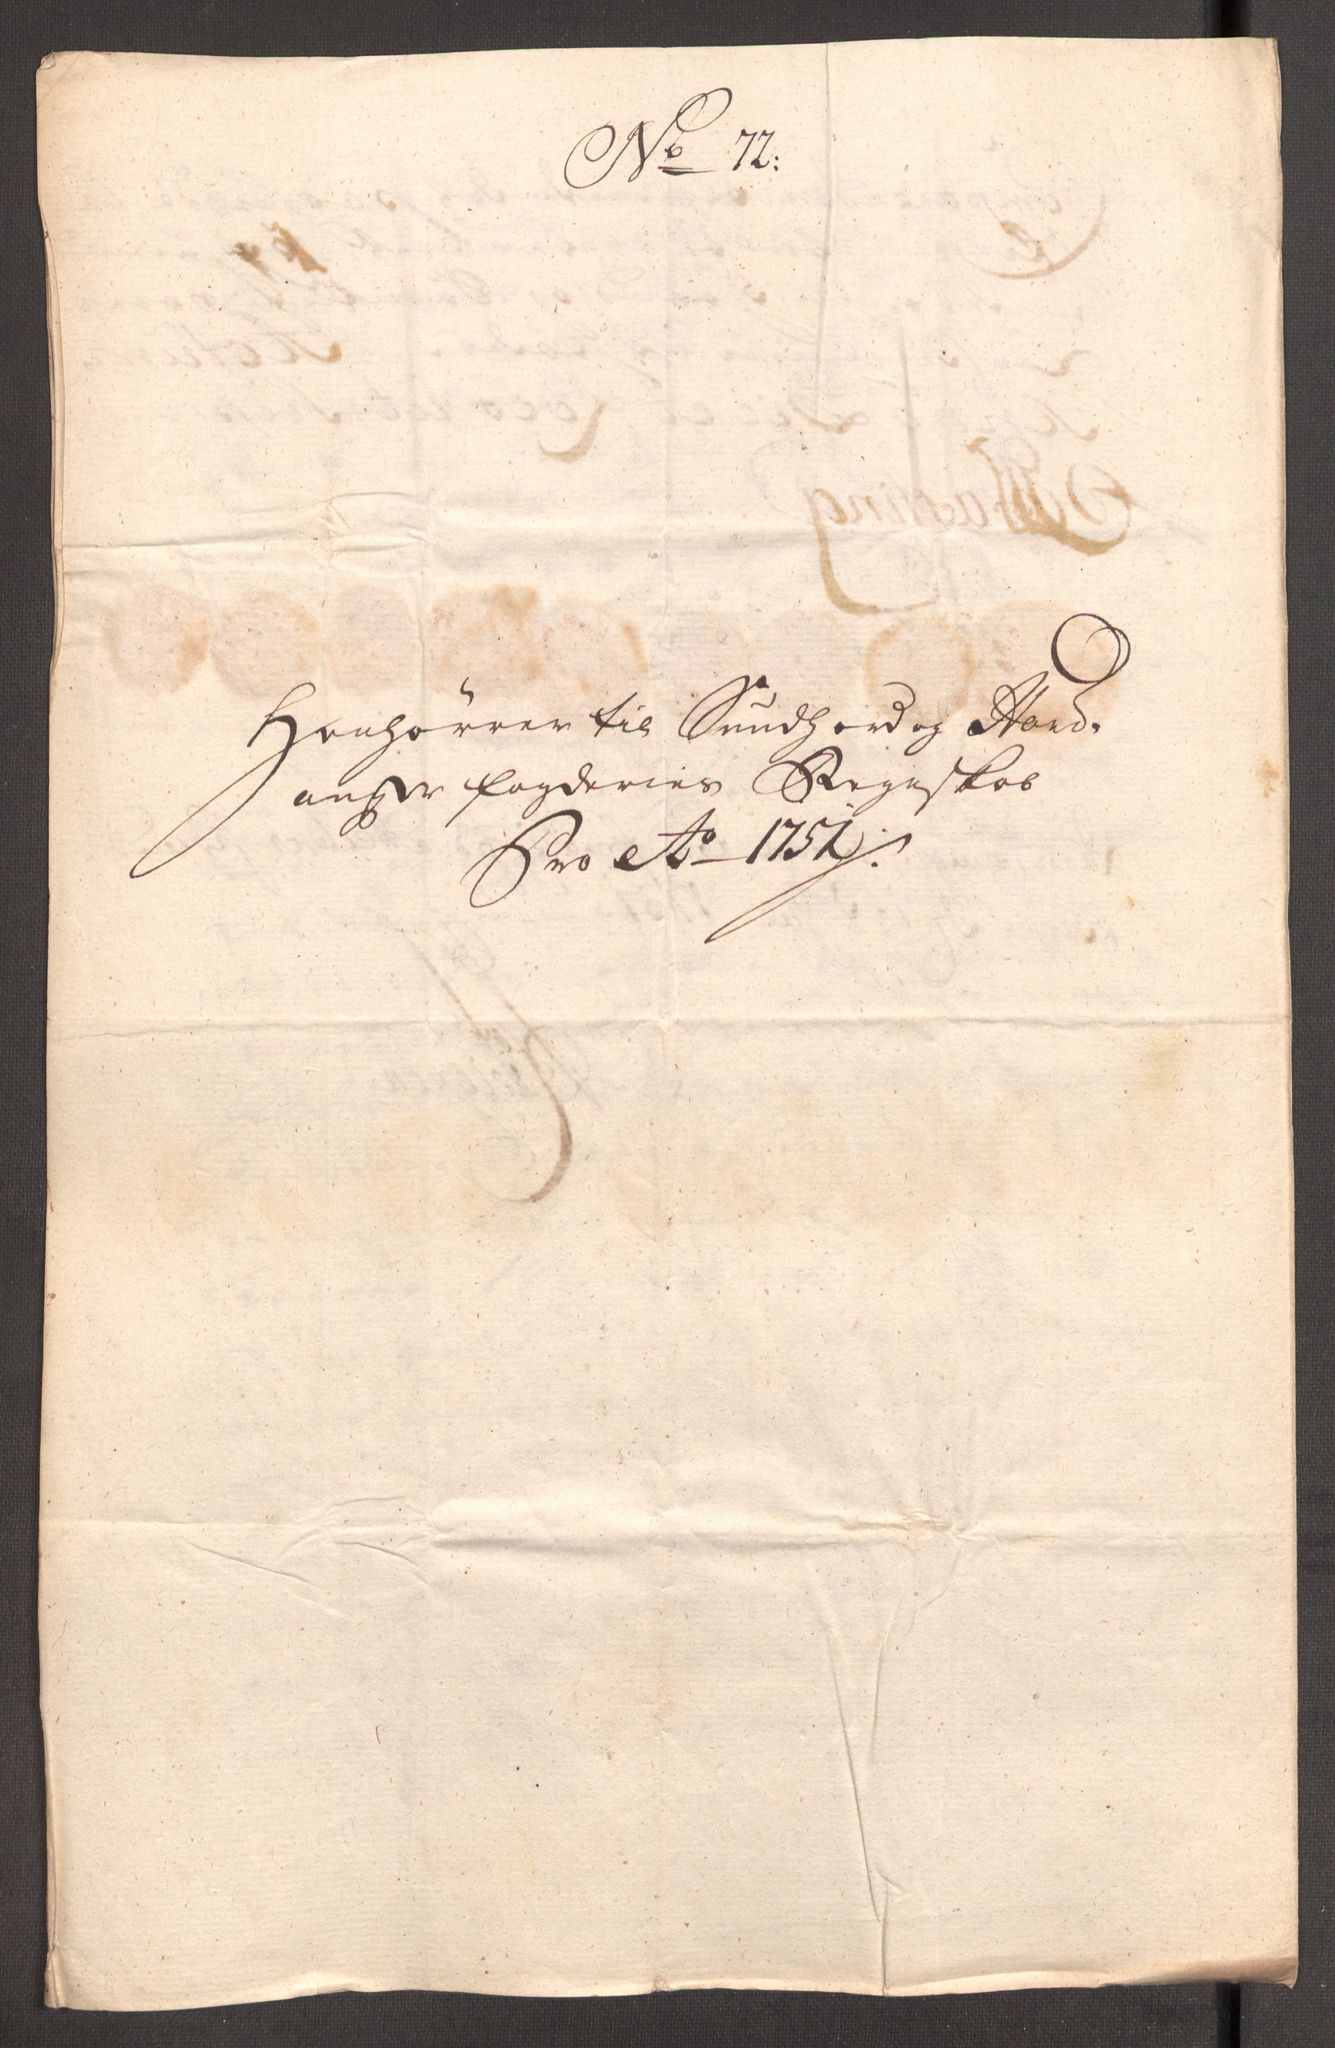 No 72:
Henhørrer til Sundhord og Hard-
anger fogderies Regnskab
Pro Ao 1751.